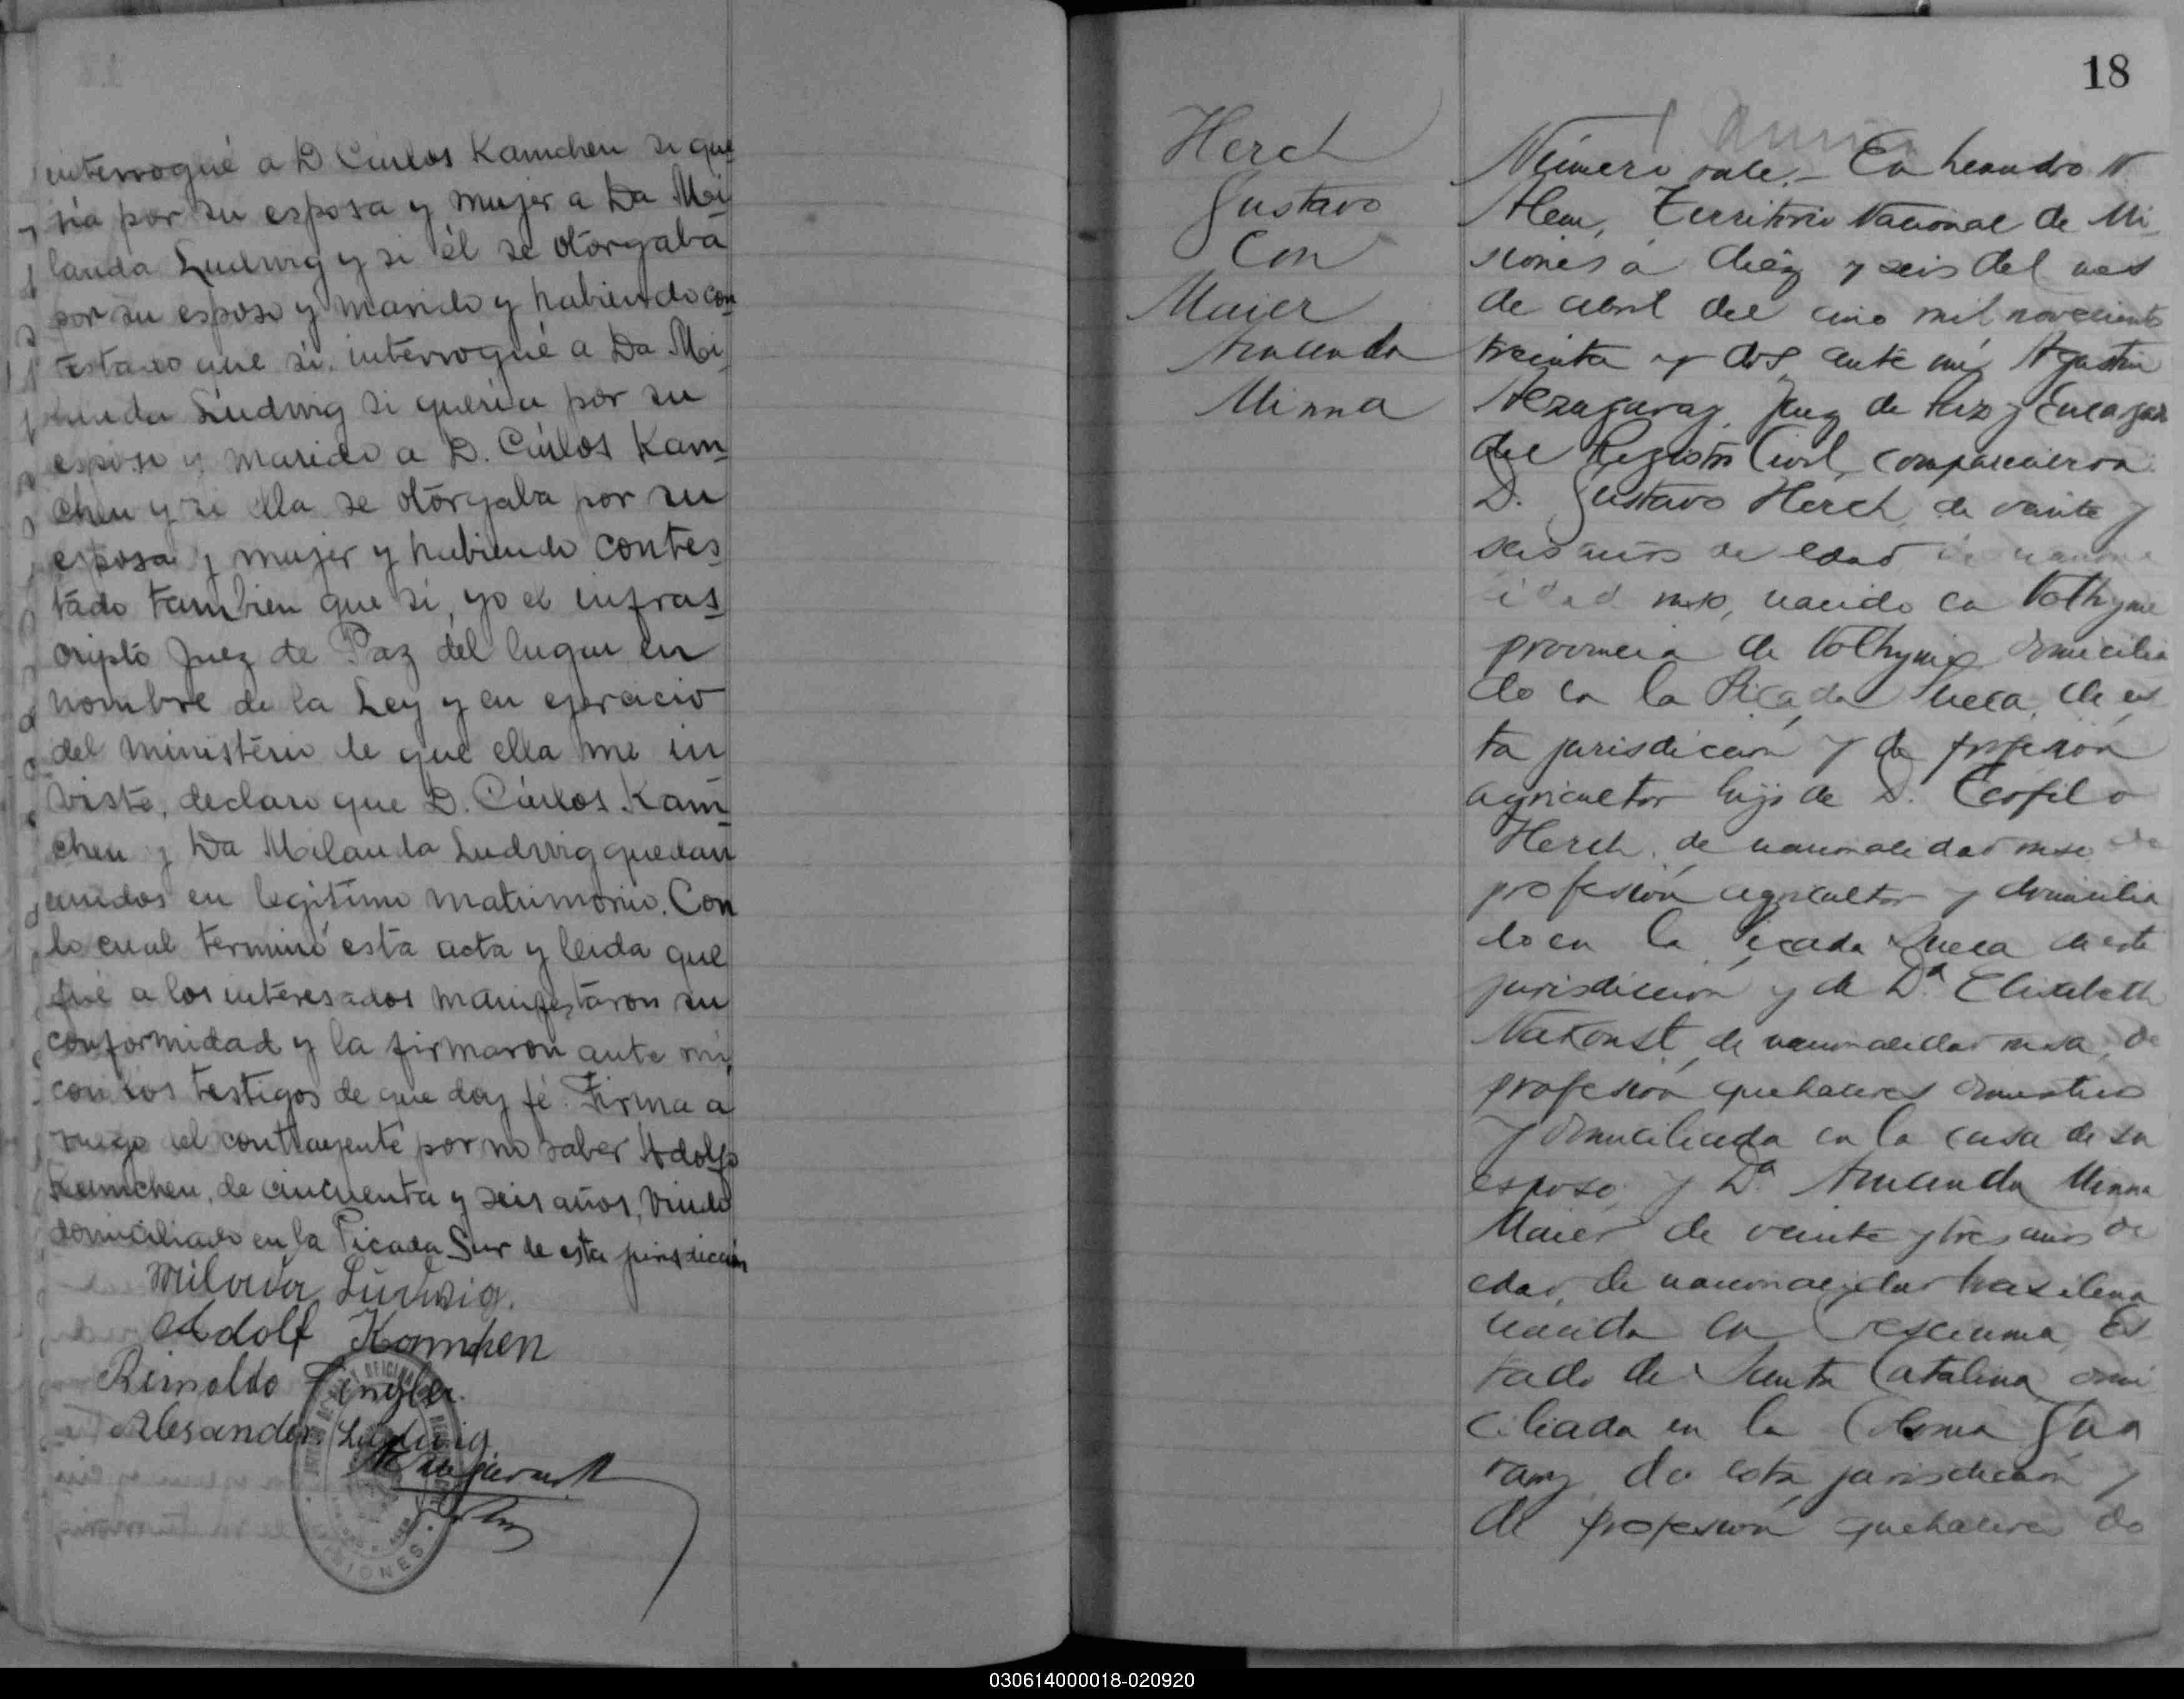 interrogué a D Cárlos Kamchen si que
ria por su esposa y mujer a Da Mi
landa Ludwig y si él se otorgaba
por su esposo y marido y habiendo con
testado que si, interrogué a Da Mi
landa Ludwig si queria por su
esposo y marido a D. Cárlos Kam
chen y si ella se otorgaba por su
esposa y mujer y habiendo contes
tado tambien que si, yo el infras
cripto Juez de Paz del lugar en
nombre de la Ley y en ejercicio
del ministerio de que ella me in
viste, declaro que D. Cárlos Kam
chen y Da Milanda Ludwig quedan
unidos en legitimo matrimonio. Con
lo cual terminó esta acta y leida que
fué a los interesados manifestaron su
conformidad y la firmaron ante mi,
con los testigos de que doy fé. Firma a
ruego del contrayente por no saber Adolfo
Kamchen, de cincuenta y seis años, viudo
domiciliado en la Picada Sur de esta jurisdiccion
Ludwig.
Adolf Kamchen
Reinoldo
Alesander Ludwig
MISIONES
18
Herch
Gustavo
Con
Maier
Amanda
Minna
Número once.- En Leandro N.
Alem, Territorio Nacional de Mi
siones a diéz y seis del mes
de abril del año mil novecientos
treinta y dos, ante mí, Agustin
Juez de Paz y Encargado
del Registro Civil, comparecieron:
D. Gustavo Herch, de veinte y
seis años de edad de naciona
lidad ruso, nacido en Volhynie
provincia de Volhynie domicilia
do en la Picada Sueca, de es
ta jurisdiccion y de profesión
agricultor hijo de D. Teófilo
Herch, de nacionalidad ruso de
profesión agricultor y domicilia
do en la Picada Sueca de esta
jurisdicción y de Da Elisabeth
de nacionalidad rusa, de
profesión quehaceres domesticos
y domiciliada en la casa de su
esposo, y Da Amanda Minna
Maier de veinte y tres años de
edad, de nacionalidad brasilena
nacida en Cresciuma, Es
tado de Santa Catalina domi
ciliada en la Colonia Gua
rany, de esta jurisdicción y
de profesión quehaceres do
030614000018-020920